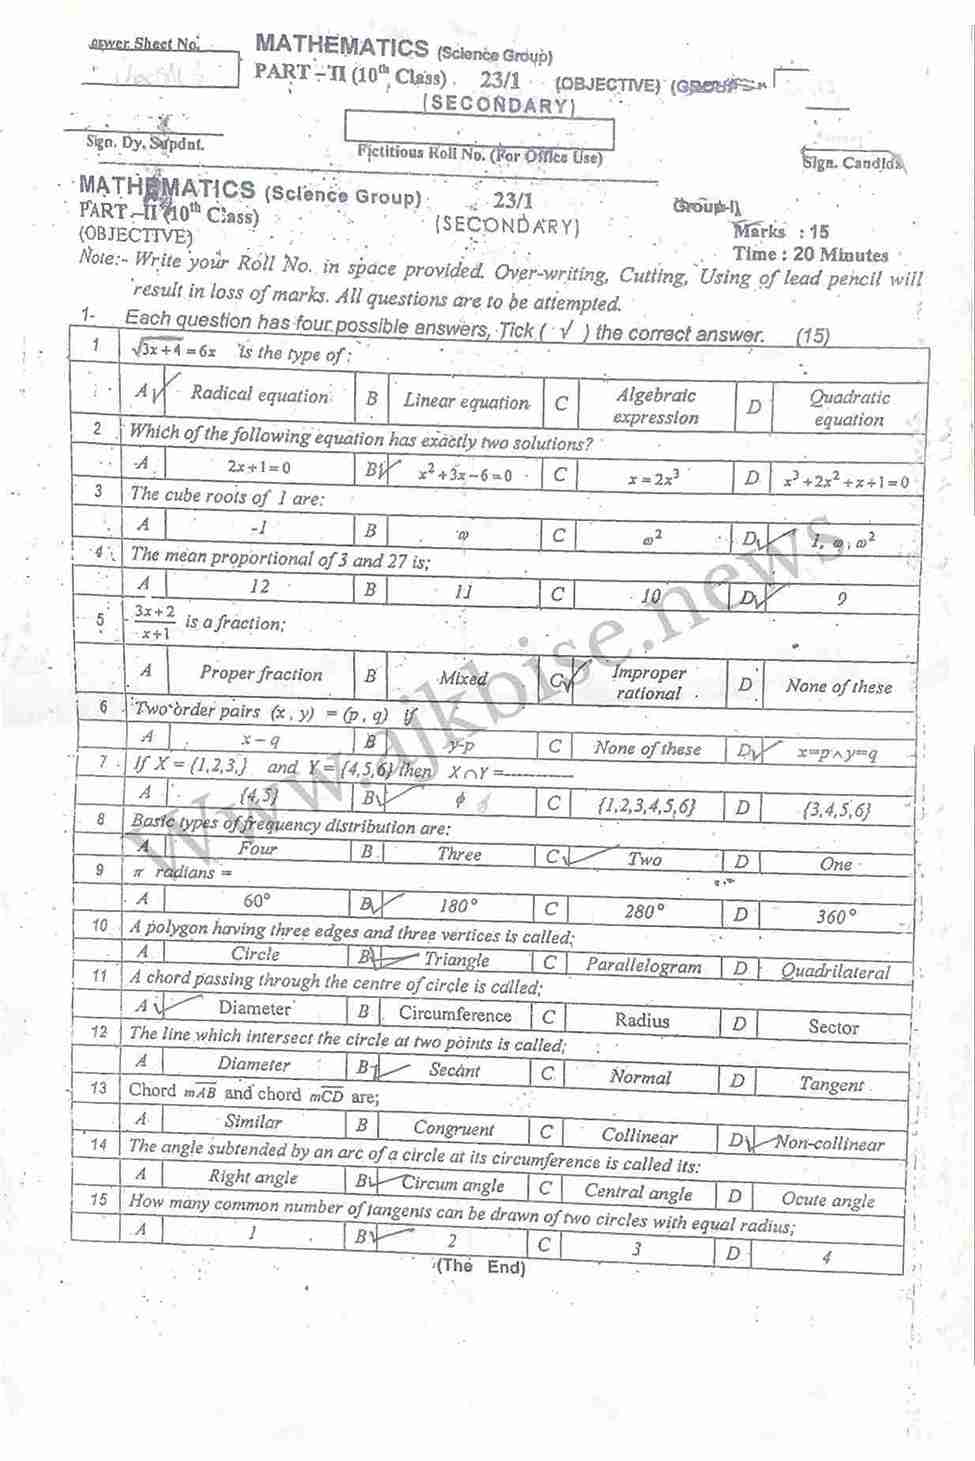 nswer Sheet No.
MATHEMATICS (Science Group)
PART –II (10th Class) 23/1 (OBJECTIVE)
(SECONDARY)
Sign. Dy. Supdnt.
Fictitious Roll No. (For Office Use)
Sign. Candida
MATHEMATICS (Science Group) 23/1 Group-I)
PART –II (10th Class) (SECONDARY) Marks : 15
(OBJECTIVE) Time : 20 Minutes
Note:- Write your Roll No. in space provided. Over-writing, Cutting, Using of lead pencil will
result in loss of marks. All questions are to be attempted.
1- Each question has four possible answers, Tick ( √ ) the correct answer. (15)
1 √3x+4 = 6x is the type of :
A Radical equation B Linear equation C Algebraic expression D Quadratic equation
2 Which of the following equation has exactly two solutions?
A 2x+1=0 B x²+3x−6=0 C x=2x³ D x³+2x²+x+1=0
3 The cube roots of 1 are:
A -1 B ω C ω² D 1, ω, ω²
4 The mean proportional of 3 and 27 is;
A 12 B 11 C 10 D 9
5 3x+2/x+1 is a fraction;
A Proper fraction B Mixed C Improper rational D None of these
6 Two order pairs (x , y) = (p , q) if
A x – q B y-p C None of these D x=p∧y=q
7 If X = {1,2,3,} and Y = {4,5,6} then X∩Y =------------
A {4,5} B ϕ C {1,2,3,4,5,6} D {3,4,5,6}
8 Basic types of frequency distribution are:
A Four B Three C Two D One
9 π radians =
A 60° B 180° C 280° D 360°
10 A polygon having three edges and three vertices is called;
A Circle B Triangle C Parallelogram D Quadrilateral
11 A chord passing through the centre of circle is called;
A Diameter B Circumference C Radius D Sector
12 The line which intersect the circle at two points is called;
A Diameter B Secant C Normal D Tangent
13 Chord mAB and chord mCD are;
A Similar B Congruent C Collinear D Non-collinear
14 The angle subtended by an arc of a circle at its circumference is called its:
A Right angle B Circum angle C Central angle D Ocute angle
15 How many common number of tangents can be drawn of two circles with equal radius;
A 1 B 2 C 3 D 4
(The End)
www.ajkbise.news